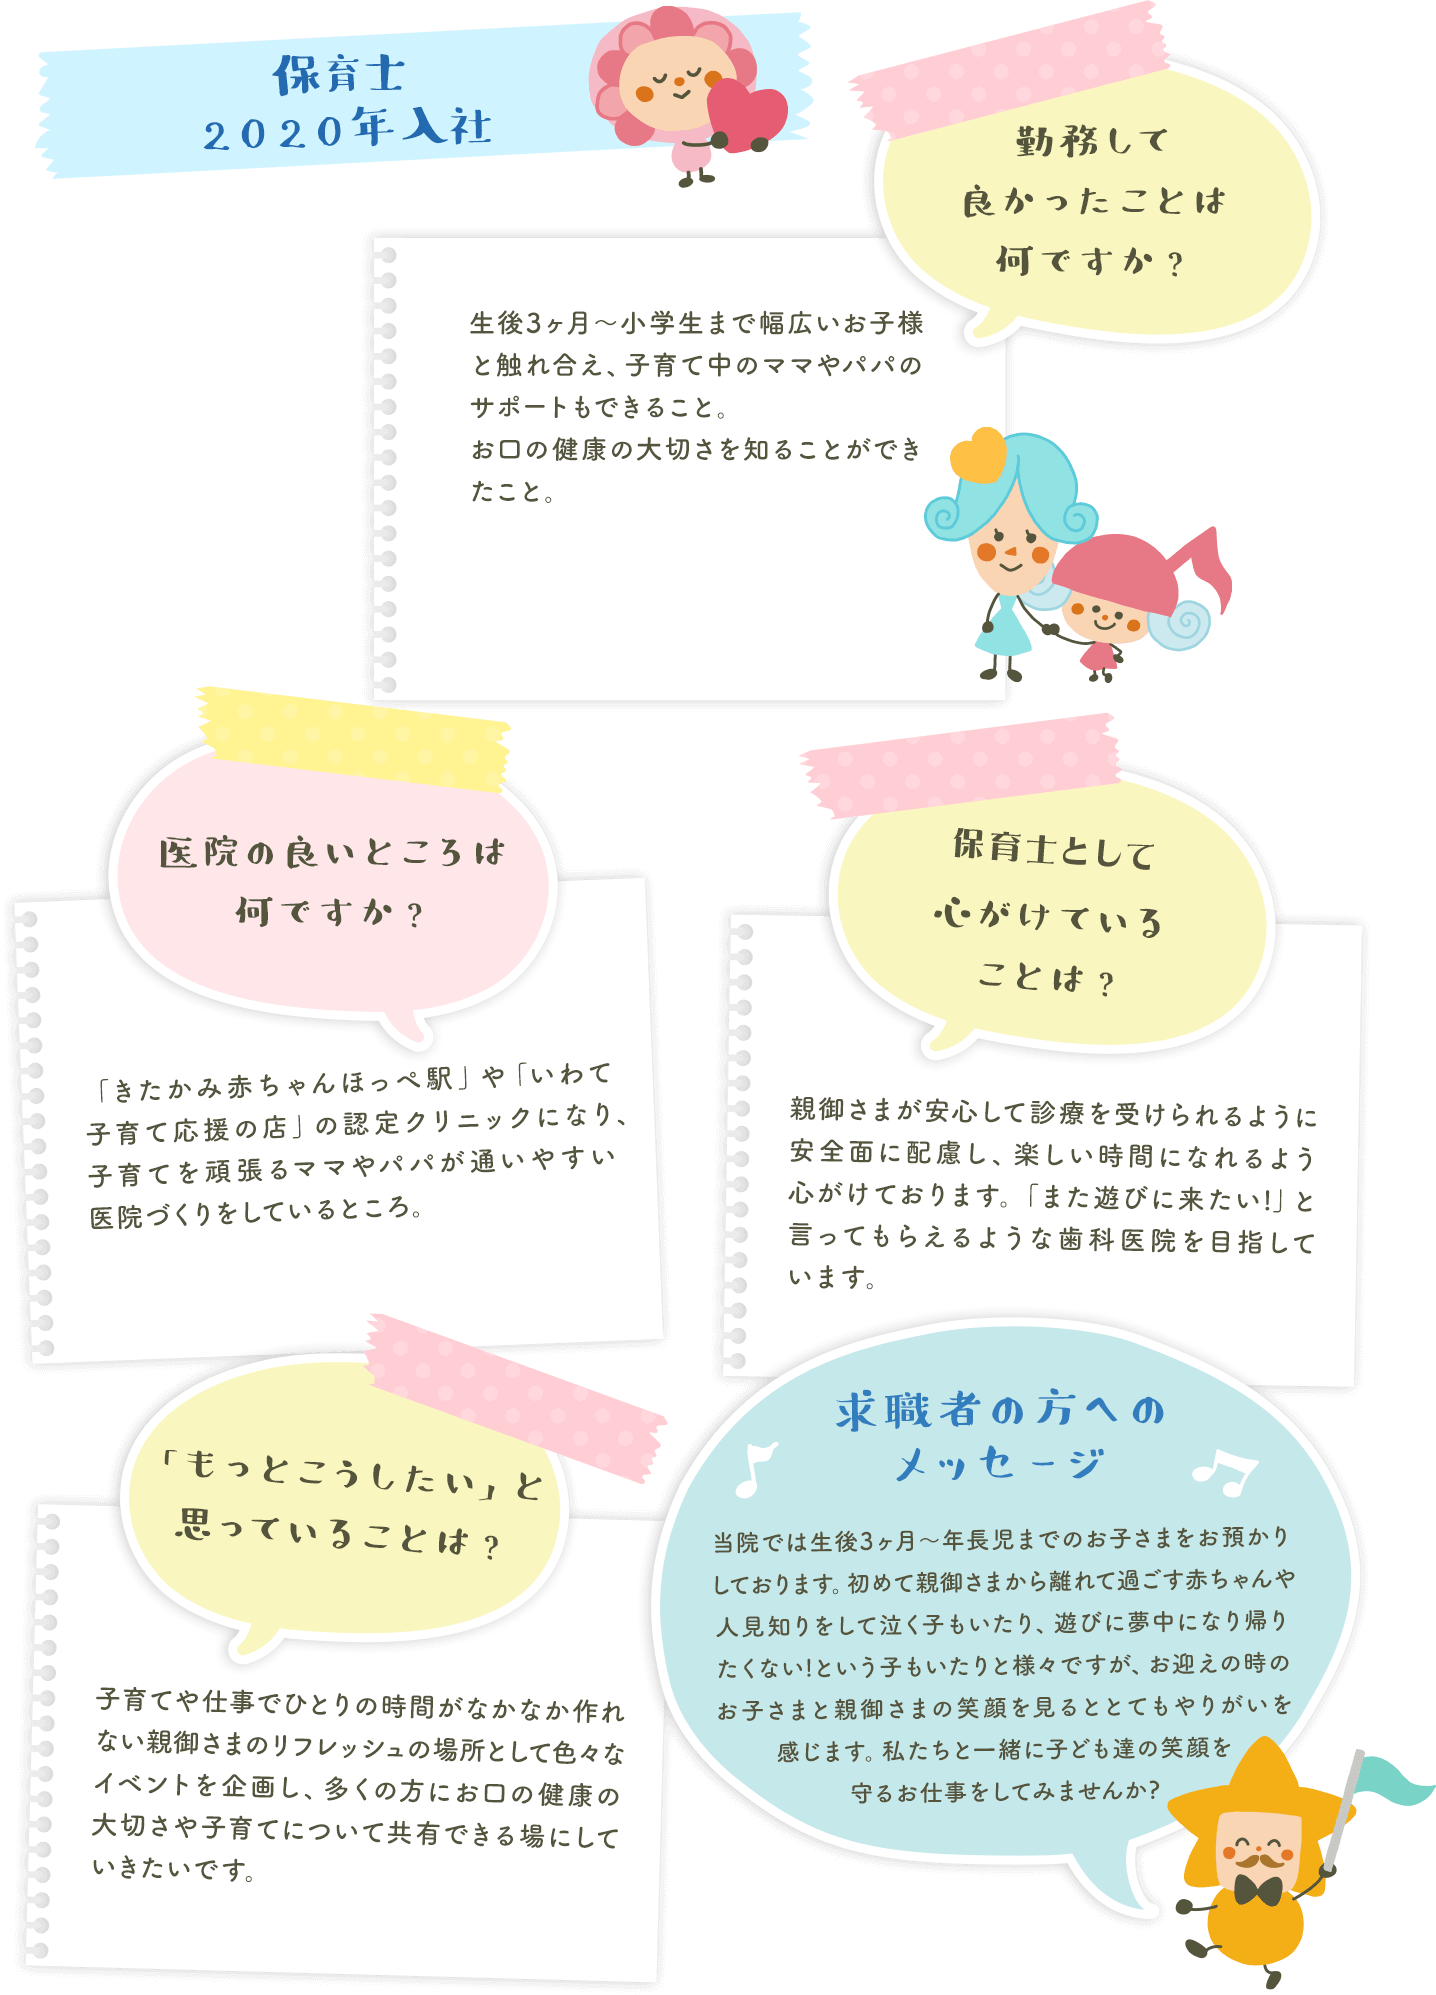 保育士
2020年入社
勤務して
良かったことは
何ですか？
生後3ヶ月～小学生まで幅広いお子様
と触れ合え、子育て中のママやパパの
サポートもできること。
お口の健康の大切さを知ることができ
たこと。
医院の良いところは
何ですか？
「きたかみ赤ちゃんほっぺ駅」や「いわて
子育て応援の店」の認定クリニックになり、
子育てを頑張るママやパパが通いやすい
医院づくりをしているところ。
保育士として
心がけている
ことは？
親御さまが安心して診療を受けられるように
安全面に配慮し、楽しい時間になれるよう
心がけております。「また遊びに来たい!」と
言ってもらえるような歯科医院を目指して
います。
「もっとこうしたい」と
思っていることは？
子育てや仕事でひとりの時間がなかなか作れ
ない親御さまのリフレッシュの場所として色々な
イベントを企画し、多くの方にお口の健康の
大切さや子育てについて共有できる場にして
いきたいです。
求職者の方への
メッセージ
当院では生後3ヶ月～年長児までのお子さまをお預かり
しております。初めて親御さまから離れて過ごす赤ちゃんや
人見知りをして泣く子もいたり、遊びに夢中になり帰り
たくない!という子もいたりと様々ですが、お迎えの時の
お子さまと親御さまの笑顔を見るととてもやりがいを
感じます。私たちと一緒に子ども達の笑顔を
守るお仕事をしてみませんか?